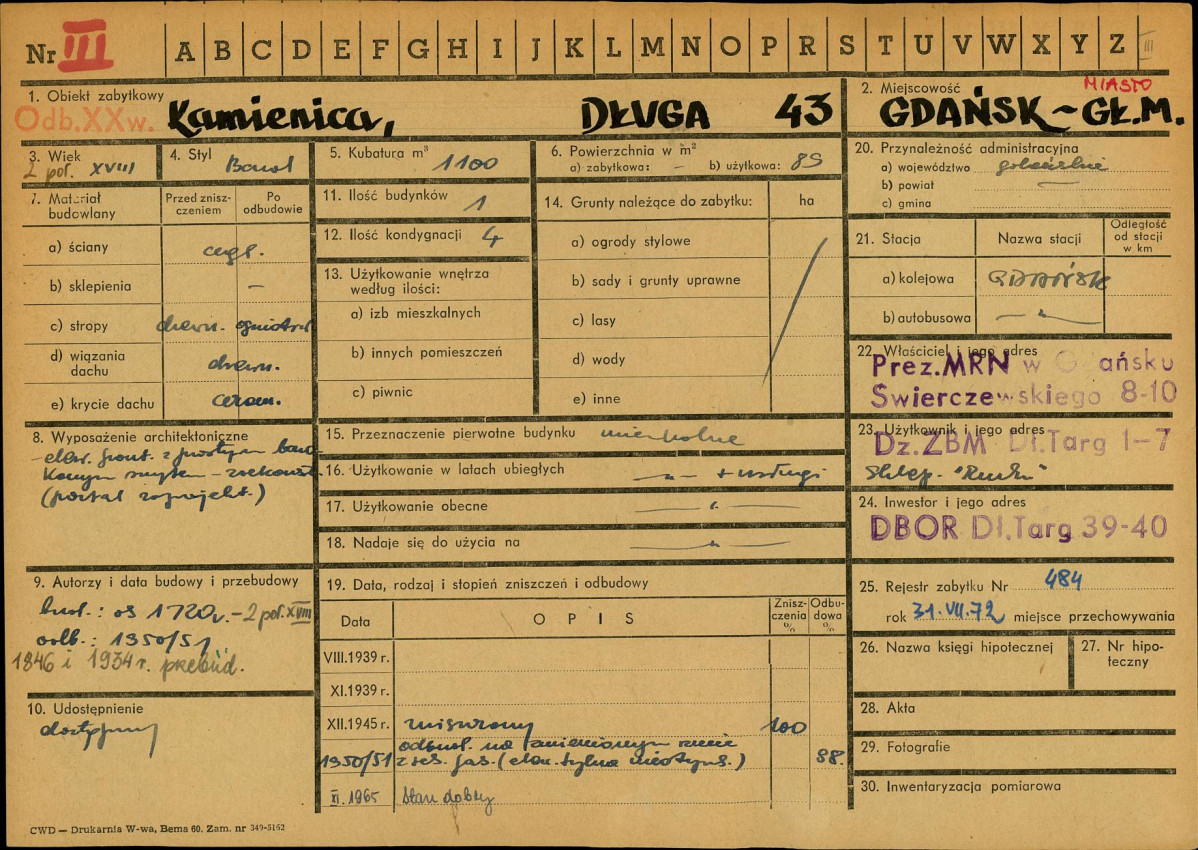 Nr III A B C D E F G H I J K L M N O P R S T U V W X Y Z III
1. Obiekt zabytkowy
Odb.XXw. Kamienica, DŁUGA 43
2. Miejscowość MIASTO
GDAŃSK-GŁ.M.
3. Wiek
2 poł. XVIII
4. Styl Barok
5. Kubatura m³ 1100
6. Powierzchnia w m²
a) zabytkowa: — b) użytkowa: 89
7. Materiał budowlany
Przed zniszczeniem
Po odbudowie
a) ściany cegł.
b) sklepienia —
c) stropy drewn. ogniotrw
d) wiązania dachu drewn.
e) krycie dachu ceram.
8. Wyposażenie architektoniczne
elew. front. z prostym
(portal zaprojekt.)
9. Autorzy i data budowy i przebudowy
bud.: os 1720r. – 2 poł. XVIII
odb.: 1950/51
1846 i 1934 r. przebud.
10. Udostępnienie
dostępny
11. Ilość budynków 1
12. Ilość kondygnacji 4
13. Użytkowanie wnętrza według ilości:
a) izb mieszkalnych
b) innych pomieszczeń
c) piwnic
14. Grunty należące do zabytku: ha
a) ogrody stylowe
b) sady i grunty uprawne
c) lasy
d) wody
e) inne
15. Przeznaczenie pierwotne budynku mieszkalne
16. Użytkowanie w latach ubiegłych —"— + usługi
17. Użytkowanie obecne —"—
18. Nadaje się do użycia na —"—
19. Data, rodzaj i stopień zniszczeń i odbudowy
Data OPIS Zniszczenia % Odbudowa %
VIII.1939 r.
XI.1939 r.
XII.1945 r. zniszczony 100
odbud. na zmienionym rzucie
1950/51 z fas. (elew. tylna nietynk.) 98.
XI.1965 Stan dobry
20. Przynależność administracyjna
a) województwo gdańskie
b) powiat —
c) gmina
21. Stacja Nazwa stacji Odległość od stacji w km
a) kolejowa GDAŃSK
b) autobusowa —"—
22. Właściciel i jego adres
Prez.MRN w Gdańsku
Swierczewskiego 8-10
23. Użytkownik i jego adres
Dz.ZBM Dł.Targ 1-7
Sklep. "Ruchu"
24. Inwestor i jego adres
DBOR Dł.Targ 39-40
25. Rejestr zabytku Nr 484
rok 31.VII.72 miejsce przechowywania
26. Nazwa księgi hipotecznej
27. Nr hipoteczny
28. Akta
29. Fotografie
30. Inwentaryzacja pomiarowa
CWD — Drukarnia W-wa, Bema 60. Zam. nr 349-5162